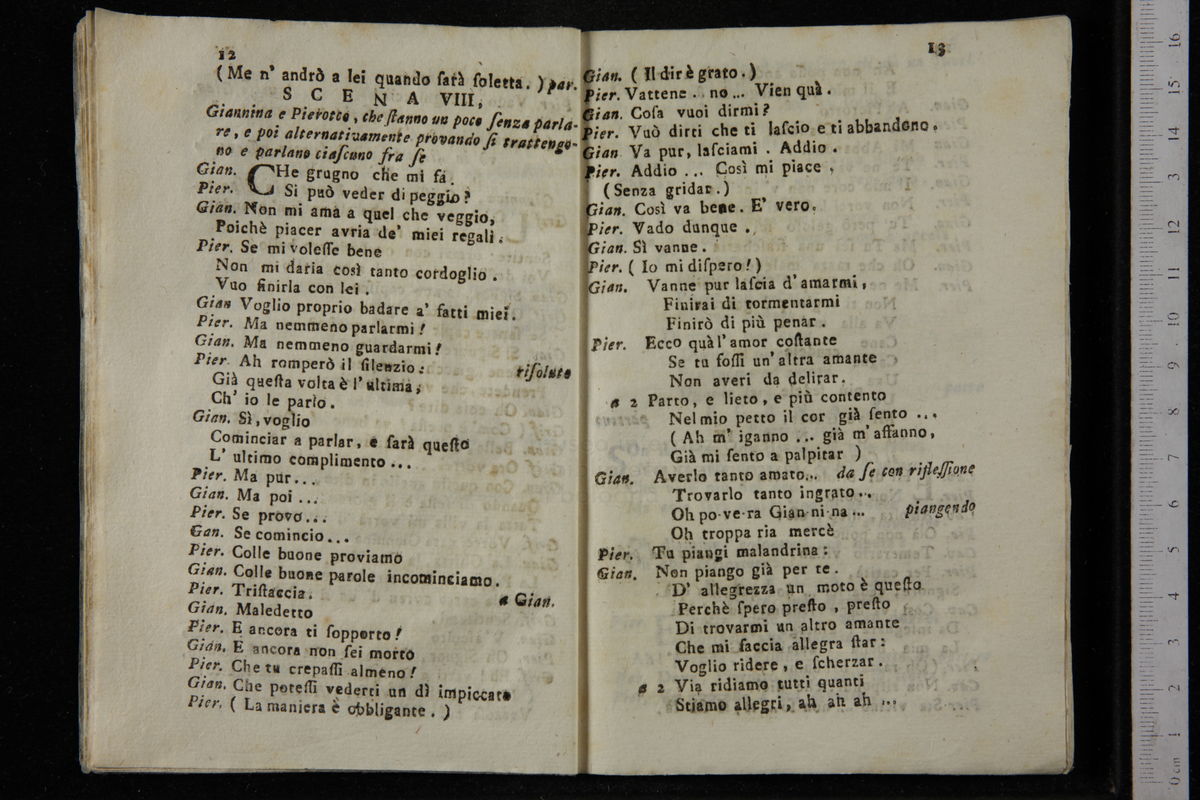 12
(Me n' andrò a lei quando ſarà ſoletta. ) par.
S C E N A VIII,
Giannina e Pierotto, che ſtanno un poco ſenza parla-
re, e poi alternativamente provando ſi trattengo-
no e parlano ciaſcuno fra ſe
Gian. CHe grugno che mi fa.
Pier. Si può veder di peggio?
Gian. Non mi ama a quel che veggio,
Poichè piacer avria de' miei regali.
Pier. Se mi voleſſe bene
Non mi daria così tanto cordoglio.
Vuo finirla con lei.
Gian Voglio proprio badare a' fatti miei.
Pier. Ma nemmeno parlarmi!
Gian. Ma nemmeno guardarmi!
Pier. Ah romperò il ſilenzio: riſoluto
Già queſta volta è l' ultima;
Ch' io le parlo.
Gian. Sì, voglio
Cominciar a parlar, e ſarà queſto
L' ultimo complimento...
Pier. Ma pur...
Gian. Ma poi...
Pier. Se provo...
Gan. Se comincio...
Pier. Colle buone proviamo
Gian. Colle buone parole incominciamo.
Pier. Triſtaccia. a Gian.
Gian. Maledetto
Pier. E ancora ti ſopporto!
Gian. E ancora non ſei morto
Pier. Che tu crepaſſi almeno!
Gian. Che poteſſi vederti un dì impiccato
Pier. ( La maniera è obbligante. )
13
Gian. ( Il dir è grato. )
Pier. Vattene.. no... Vien quà.
Gian. Coſa vuoi dirmi?
Pier. Vuò dirti che ti laſcio e ti abbandono.
Gian Va pur, laſciami. Addio.
Pier. Addio... Così mi piace,
(Senza gridar.)
Gian. Così va bene. E' vero.
Pier. Vado dunque.
Gian. Sì vanne.
Pier. ( Io mi diſpero! )
Gian. Vanne pur laſcia d' amarmi,
Finirai di tormentarmi
Finirò di più penar.
Pier. Ecco quà l' amor coſtante
Se tu foſſi un' altra amante
Non averi da delirar.
a 2 Parto, e lieto, e più contento
Nel mio petto il cor già ſento...
( Ah m' iganno... già m' affanno,
Già mi ſento a palpitar )
Gian. Averlo tanto amato... da ſe con rifleſſione
Trovarlo tanto ingrato...
Oh po-ve-ra Gian-ni-na... piangendo
Oh troppa ria mercè
Pier. Tu piangi malandrina:
Gian. Non piango già per te.
D' allegrezza un moto è queſto
Perchè ſpero preſto, preſto
Di trovarmi un altro amante
Che mi faccia allegra ſtar:
Voglio ridere, e ſcherzar.
a 2 Via ridiamo tutti quanti
Stiamo allegri, ah ah ah...
0 cm 1 2 3 4 5 6 7 8 9 10 11 12 13 14 15 16